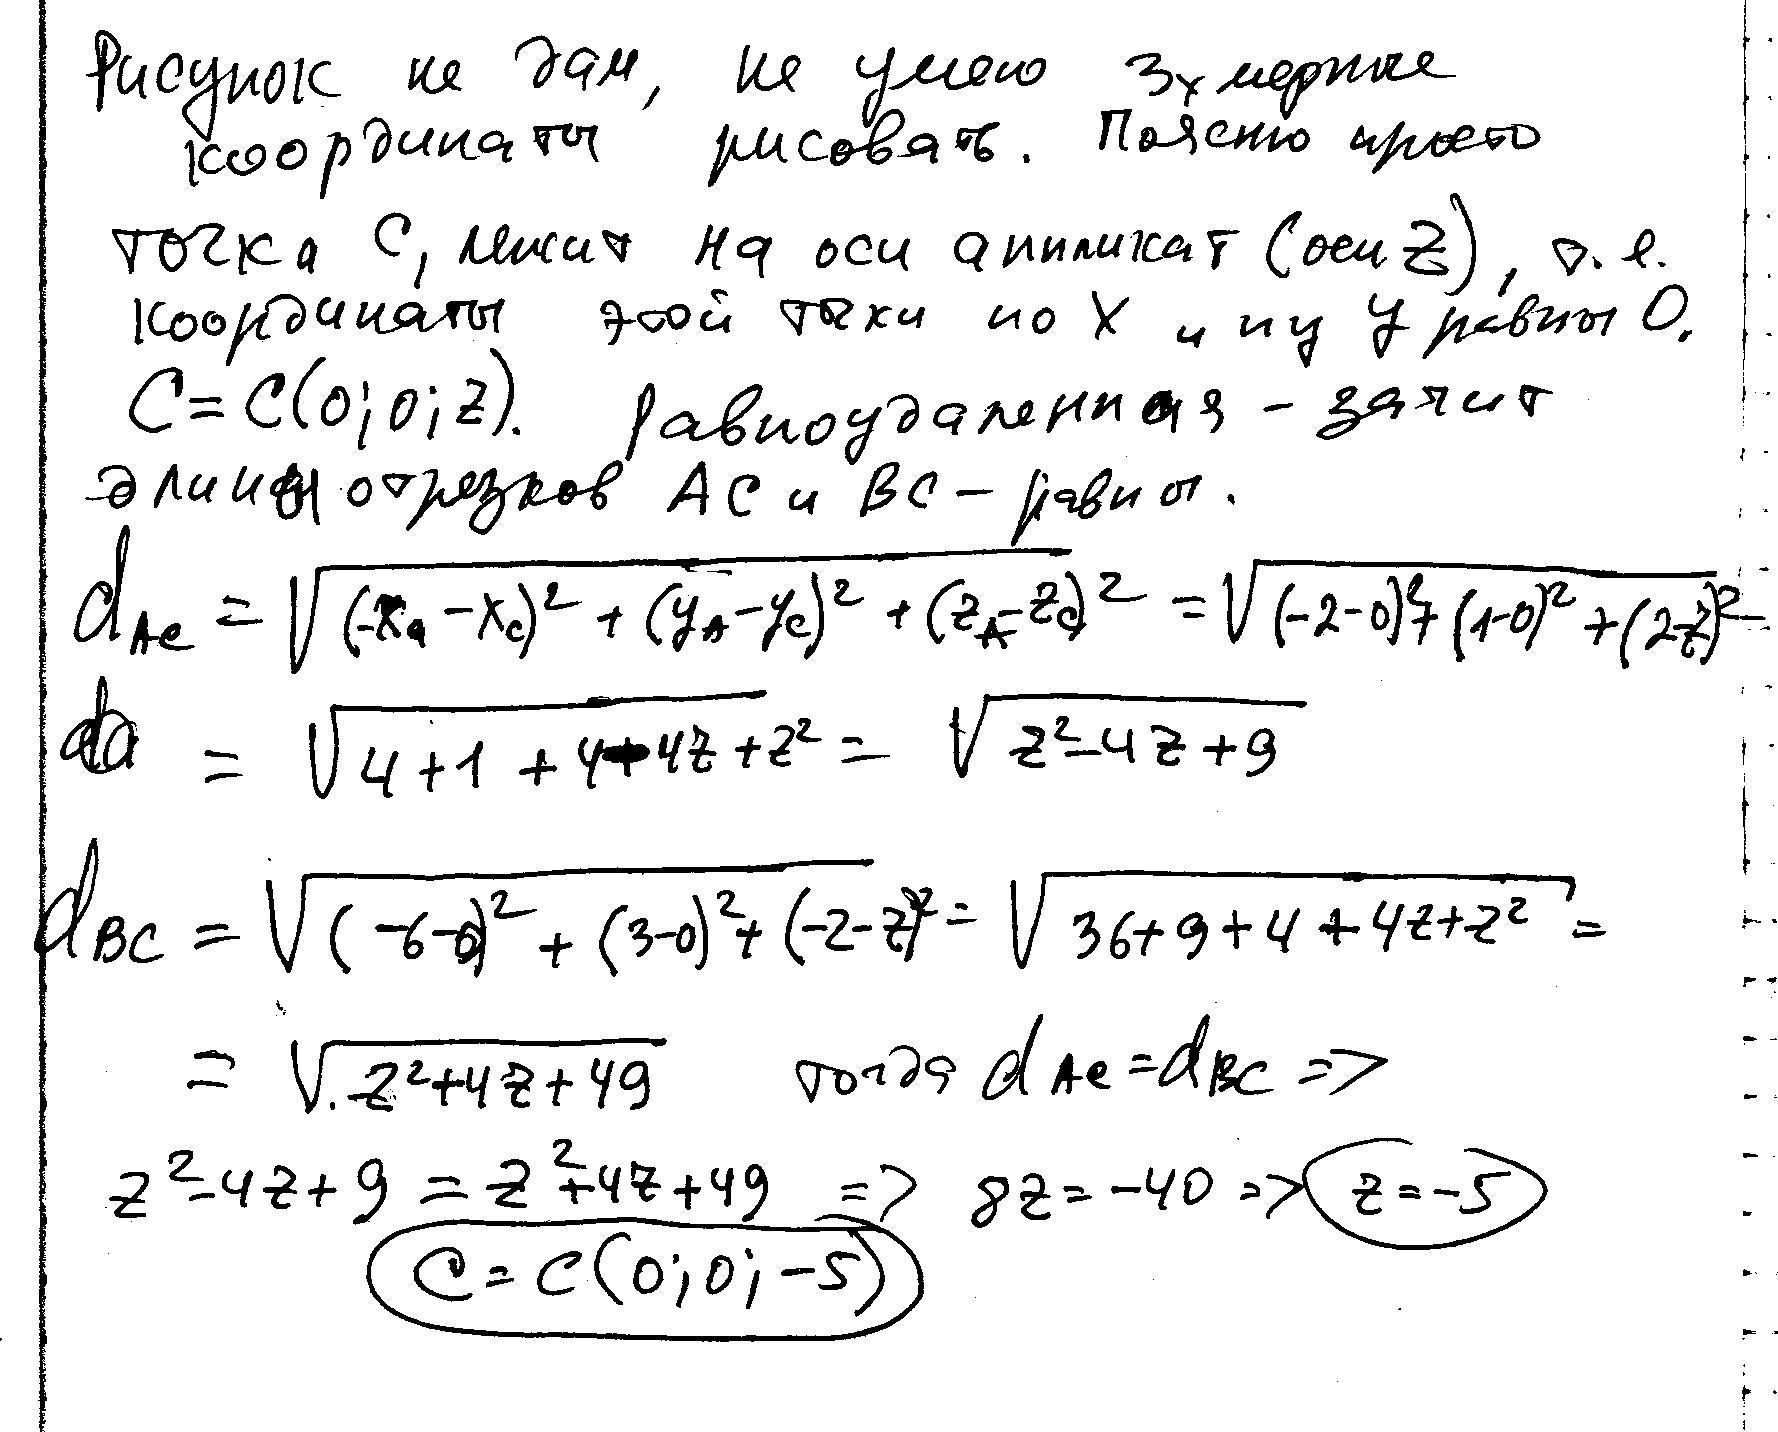 Рисунок не дам, не умею 3х мерные
координаты рисовать. Поясню просто
точка С, лежит на оси аппликат (оси Z), т.е.
координаты этой тчки по X и пу У равны 0.
C=C(0;0;z). Равноудаленная - зачит
длины отрезков АС и ВС - равны.
d_AC = √((x_a - x_c)² + (y_A - y_c)² + (z_A - z_c)²) = √((-2-0)² + (1-0)² + (2-z)²) =
da = √(4+1+4-4z+z²) = √(z²-4z+9)
d_BC = √((-6-0)² + (3-0)² + (-2-z)²) = √(36+9+4+4z+z²) =
= √(z²+4z+49) тогда d_AC = d_BC =>
z²-4z+9 = z²+4z+49 => 8z=-40 => z=-5
C=C(0;0;-5)